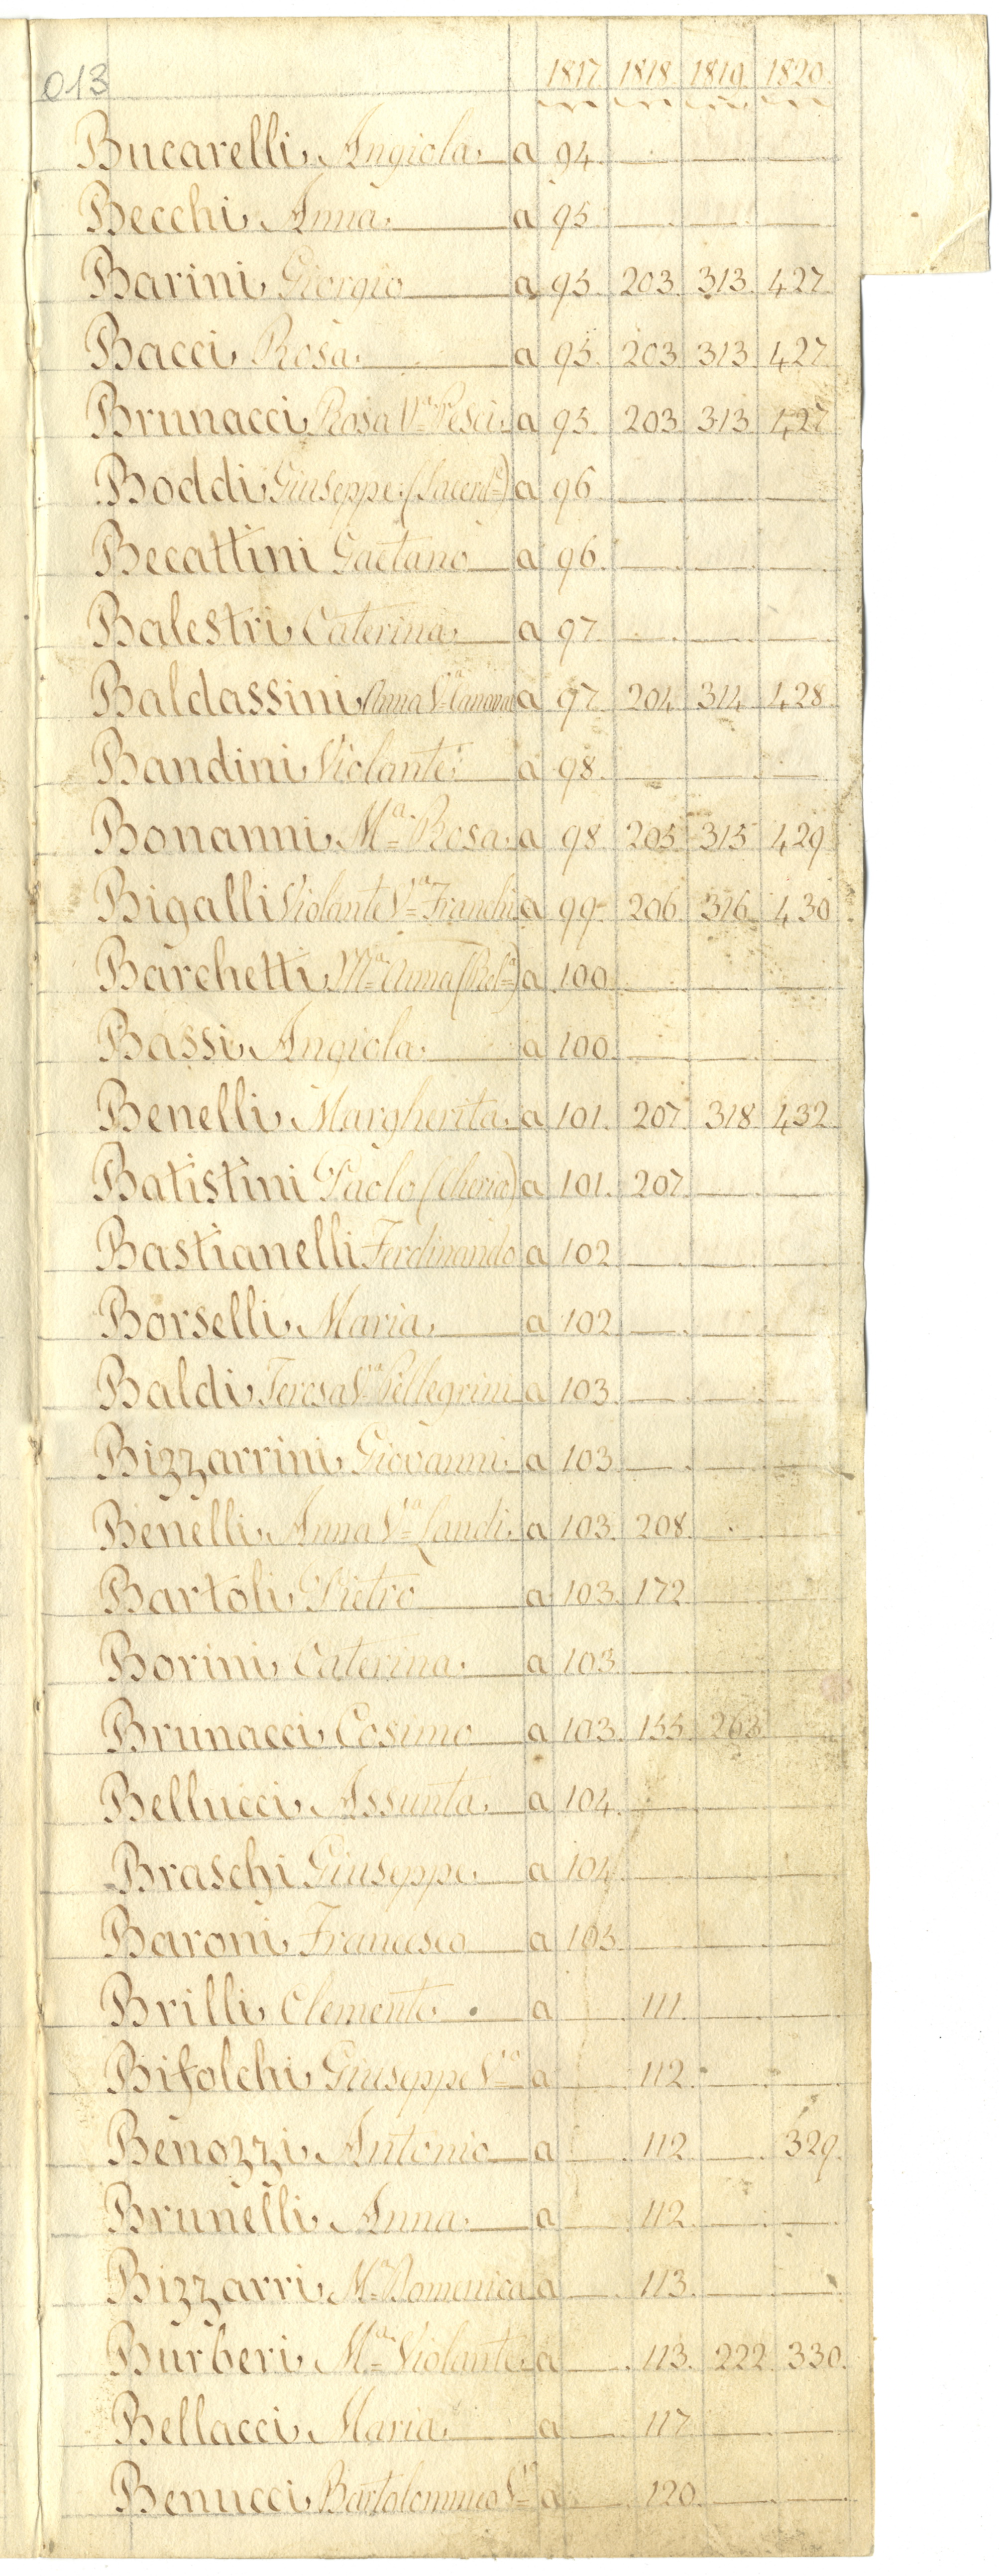 013 1817. 1818. 1819. 1820.
Bucarelli, Angiola. a 94.
Becchi, Anna. a 95
Barini, Giorgio a 95. 203. 313. 427.
Bacci, Rosa. a 95. 203. 313. 427.
Brunacci, Rosa Vª Pesci. a 95. 203. 313. 427.
Boddi, Giuseppe (Sacerdᵉ) a 96
Becattini Gaetano a 96.
Balestri, Caterina. a 97.
Baldassini, Anna Vª a 97. 204. 314. 428.
Bandini, Violante. a 98.
Bonanni, Mª Rosa. a 98. 205. 315. 429.
Bigalli Violante Vª Franchi a 99. 206. 316. 430
Barchetti, Mª Anna a 100.
Bassi, Angiola. a 100.
Benelli, Margherita. a 101. 207. 318. 432.
Batistini Paolo a 101. 207.
Bastianelli Ferdinando a 102.
Borselli, Maria. a 102.
Baldi, Teresa Vª Pellegrini a 103.
Bizzarrini, Giovanni. a 103.
Benelli, Anna Vª Landi. a 103. 208.
Bartoli, Pietro a 103. 172.
Borini, Caterina. a 103.
Brunacci, Cosimo a 103. 155. 263.
Bellucci, Assunta. a 104.
Braschi Giuseppe. a 104.
Baroni, Francesco a 105.
Brilli, Clemente. a 111.
Bifolchi, Giuseppe a 112.
Benozzi, Antonio a 112. 329.
Brunelli, Anna. a 112.
Bizzarri, Mª Domenica a 113.
Burberi, Mª Violante. a 113. 222. 330.
Bellacci, Maria. a 117.
Benucci, Bartolommeo a 120.